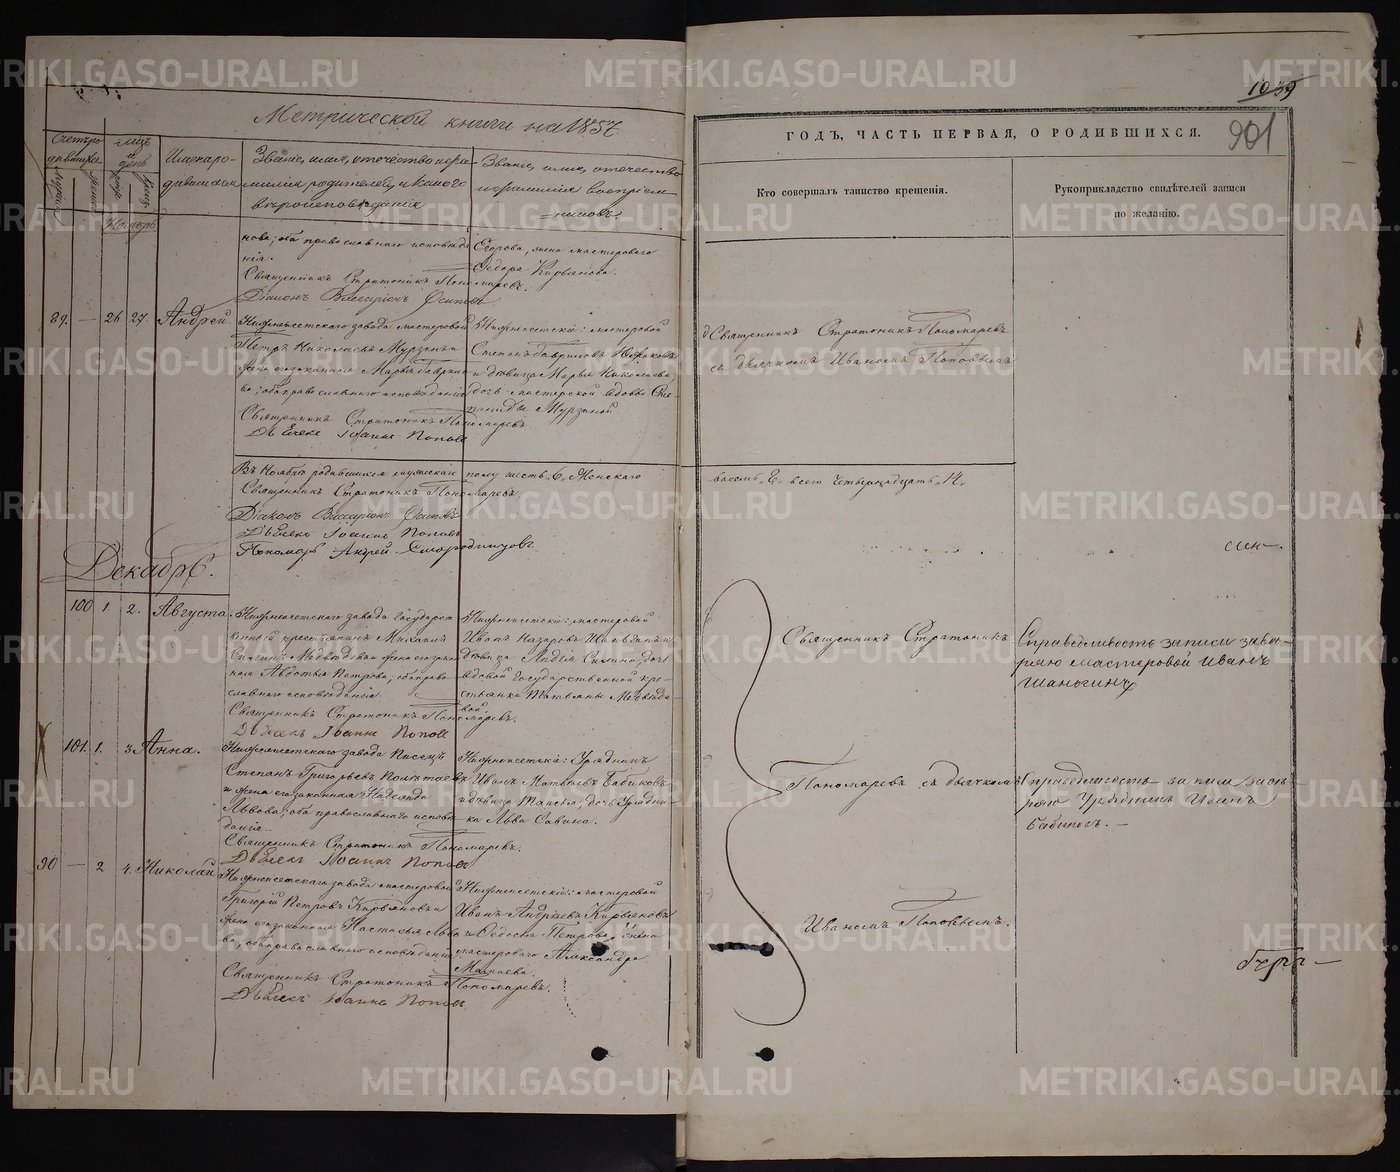 METRIKI.GASO-URAL.RU
1039
901
Метрической книги на 1857
ГОДЪ, ЧАСТЬ ПЕРВАЯ, О РОДИВШИХСЯ.
Счетъ ро-
дившихся
Мѣсяцъ и день
Имена ро-
дившихся
Званіе, имя, отчество и фа-
милія родителей, и какого
вѣроисповѣданія
Званіе, имя, отчество
и фамилія воспріем-
никовъ
Кто совершалъ таинство крещенія.
Рукоприкладство свидѣтелей записи
по желанію.
Ноябрь
нова; оба православнаго исповѣда
нія.
Священникъ Стратоникъ Пономаревъ.
Діаконъ Виссаріонъ Осиповъ
Егорова, жена мастероваго
Ѳедора Кирьянова.
89. — 26 27. Андрей.
Нижнеисетскаго завода мастеровой
Петръ Николаевъ Мурзинъ и
жена его законная Марья Гаврило
ва; оба православнаго исповѣданія
Священникъ Стратоникъ Пономаревъ
Дьячекъ Іоаннъ Поповъ
Нижнеисетскіе: мастеровой
Степанъ Гавриловъ
и дѣвица Марья Николаева,
дочь мастерской вдовы Сте-
паниды Мурзиной
Священникъ Стратоникъ Пономаревъ
съ дьячкомъ Иваномъ Поповымъ
Въ Ноябрѣ родившихся мужескаго полу шесть, 6, Женскаго
восемь, 8, всего четырнадцать, 14.
Священникъ Стратоникъ Пономаревъ.
Діаконъ Виссаріонъ Осиповъ
Дьячекъ Іоаннъ Поповъ
Пономарь Андрей Смородинцовъ.
Декабрь.
100 1. 2. Августа.
Нижнеисетскаго завода Государст
венной крестьянинъ Михаилъ
Медвѣдевъ и жена его закон
ная Авдотья Петрова; оба право
славнаго исповѣданія.
Священникъ Стратоникъ Пономаревъ.
Дьячекъ Іоаннъ Поповъ
Нижнеисетскіе: мастеровой
Иванъ Назаровъ Шаньгинъ и
дѣвица Лидія Силина, дочь
вдовой Государственной кре-
стьянки Татьяны Медвѣде-
вой.
Священникъ Стратоникъ
Справедливость записи завѣ-
ряю мастеровой Иванъ
Шаньгинъ
101. 1. 3. Анна.
Нижнеисетскаго завода Писецъ
Степанъ Григорьевъ Полѣтаевъ
и жена его законная Надежда
Львова; оба православнаго исповѣ
данія.
Священникъ Стратоникъ Пономаревъ.
Дьячекъ Іоаннъ Поповъ
Нижнеисетскіе: Урядникъ
Иванъ Матвѣевъ Бабиковъ
и дѣвица Таисья, дочь Урядни
ка Льва Савина.
Пономаревъ съ дьячкомъ
Справедливость записи завѣ-
ряю Урядникъ Иванъ
Бабиковъ. —
90 — 2 4. Николай
Нижнеисетскаго завода мастеровой
Григорій Петровъ Кирьяновъ и
жена его законная Настасья Льво
ва; оба православнаго исповѣданія
Священникъ Стратоникъ Пономаревъ.
Дьячекъ Іоаннъ Поповъ
Нижнеисетскіе: мастеровой
Иванъ Андреевъ Кирьяновъ
и Ѳедосья Петрова, жена
мастероваго Александра
Иваномъ Поповымъ.